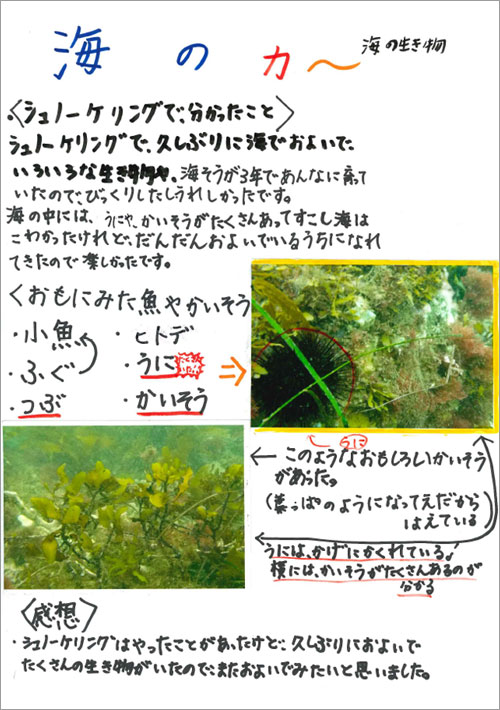 海の力～ 海の生き物
〈シュノーケリングで、分かったこと〉
シュノーケリングで、久しぶりに海でおよいで、
いろいろな生き物や、海そうが3年であんなに育って
いたので、びっくりしたしうれしかったです。
海の中には、うにや、かいそうがたくさんあってすこし海は
こわかったけれど、だんだんおよいでいるうちになれ
てきたので楽しかったです。
〈おもにみた魚やかいそう
・小魚 ・ヒトデ
・ふぐ ・うに
・つぶ ・かいそう
うに
このようなおもしろいかいそう
があった。
(葉っぱのようになってえだから
はえている
うには、かげにかくれている!
横には、かいそうがたくさんあるのが
分かる
〈感想〉
・シュノーケリングはやったことがあったけど、久しぶりにおよいで
たくさんの生き物がいたので、またおよいでみたいと思いました。